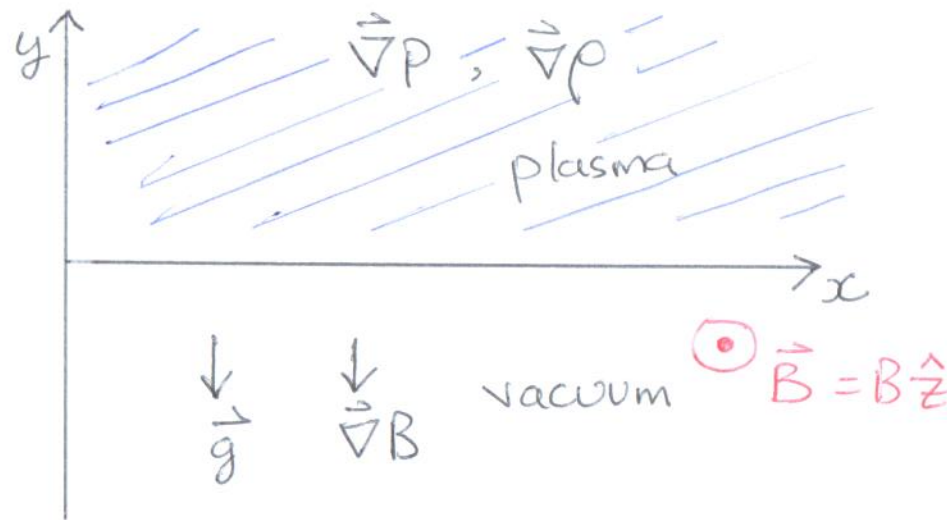 y
∇⃗p , ∇⃗ρ
plasma
x
g⃗ ∇⃗B vacuum B⃗ = B ẑ